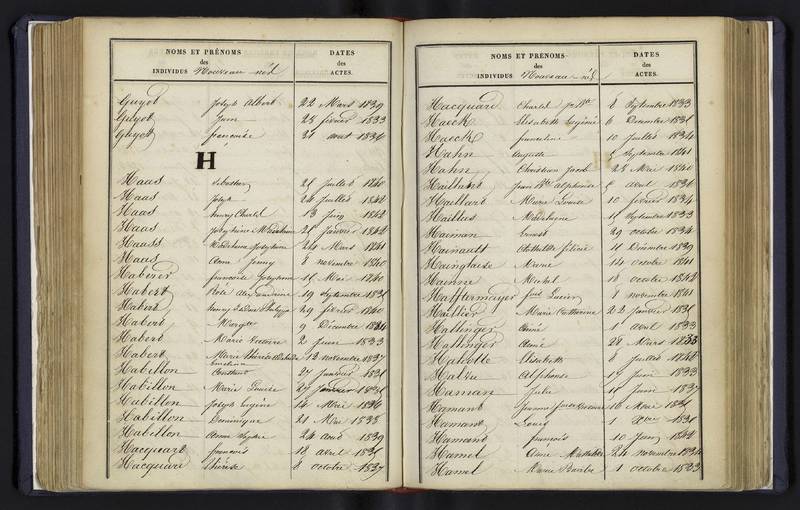 NOMS ET PRÉNOMS
des
INDIVIDUS Nouveau-nés
DATES
des
ACTES.
Guyot Joseph Albert 22 Mars 1839
Guyot 25 février 1833
Guyot françoise 31 aout 1836
H
Haas Sébastien 25 juillet 1840
Haas Joseph 24 juillet 1842
Haas henry Charles 13 juin 1842
Haas Joséphine 25 janvier 1842
Haass Madeleine Joséphine 24 Mars 1841
Haas Anne Jenny 8 novembre 1840
Haberer françoise Joséphine 15 Mai 1840
Habert Rose alexandrine 19 septembre 1835
Habert henry 29 février 1840
Habert 9 Décembre
Habert Marie Victoire 2 juin 1833
Habert Marie Thérèse 12 novembre 1837
Habillon Constant 27 janvier 1835
Habillon Marie Louise 27 janvier 1835
Habillon Joseph Eugène 14 Mai 1836
Habillon Dominique 21 Mai 1838
Habillon Anne 24 aout 1839
Hacquart françois 18 avril 1835
Hacquard thérèse 8 octobre 1837
NOMS ET PRÉNOMS
des
INDIVIDUS Nouveau-nés
DATES
des
ACTES.
Hacquard Charles 8 Septembre 1833
Haeck Elisabeth Eugénie 6 Décembre 1835
Haeck 10 juillet 1834
Hahn Auguste Septembre 1841
Hahn Christian Jacob 28 Mai 1840
Haillard Jean Bte alphonse avril 1836
Haillard Marie Louise 10 février 1834
Haillis 15 Septembre 1833
Haiman Ernest 29 octobre 1834
Hainault Clothilde félicie 11 Décembre 1839
Hainglaise Marie 14 octobre 1841
Hainne Michel 18 octobre 1842
Halftermayer Lucien 8 novembre 1841
Hallier Marie Catherine 22 janvier 1835
Hallinger Aimé 1 avril 1833
Hallinger Aimé 28 Mars 1833
Halotte Elisabeth 8 juillet 1842
Halvu Alphonse 17 juin 1833
Haman Julie 19 juin 1837
Hamant 16 Mai 1835
Hamant Louis 1 Xbre 1835
Hamand françois 10 juin 1842
Hamel Anne 24 novembre 1834
Hamel Marie Barbe 1 octobre 1833